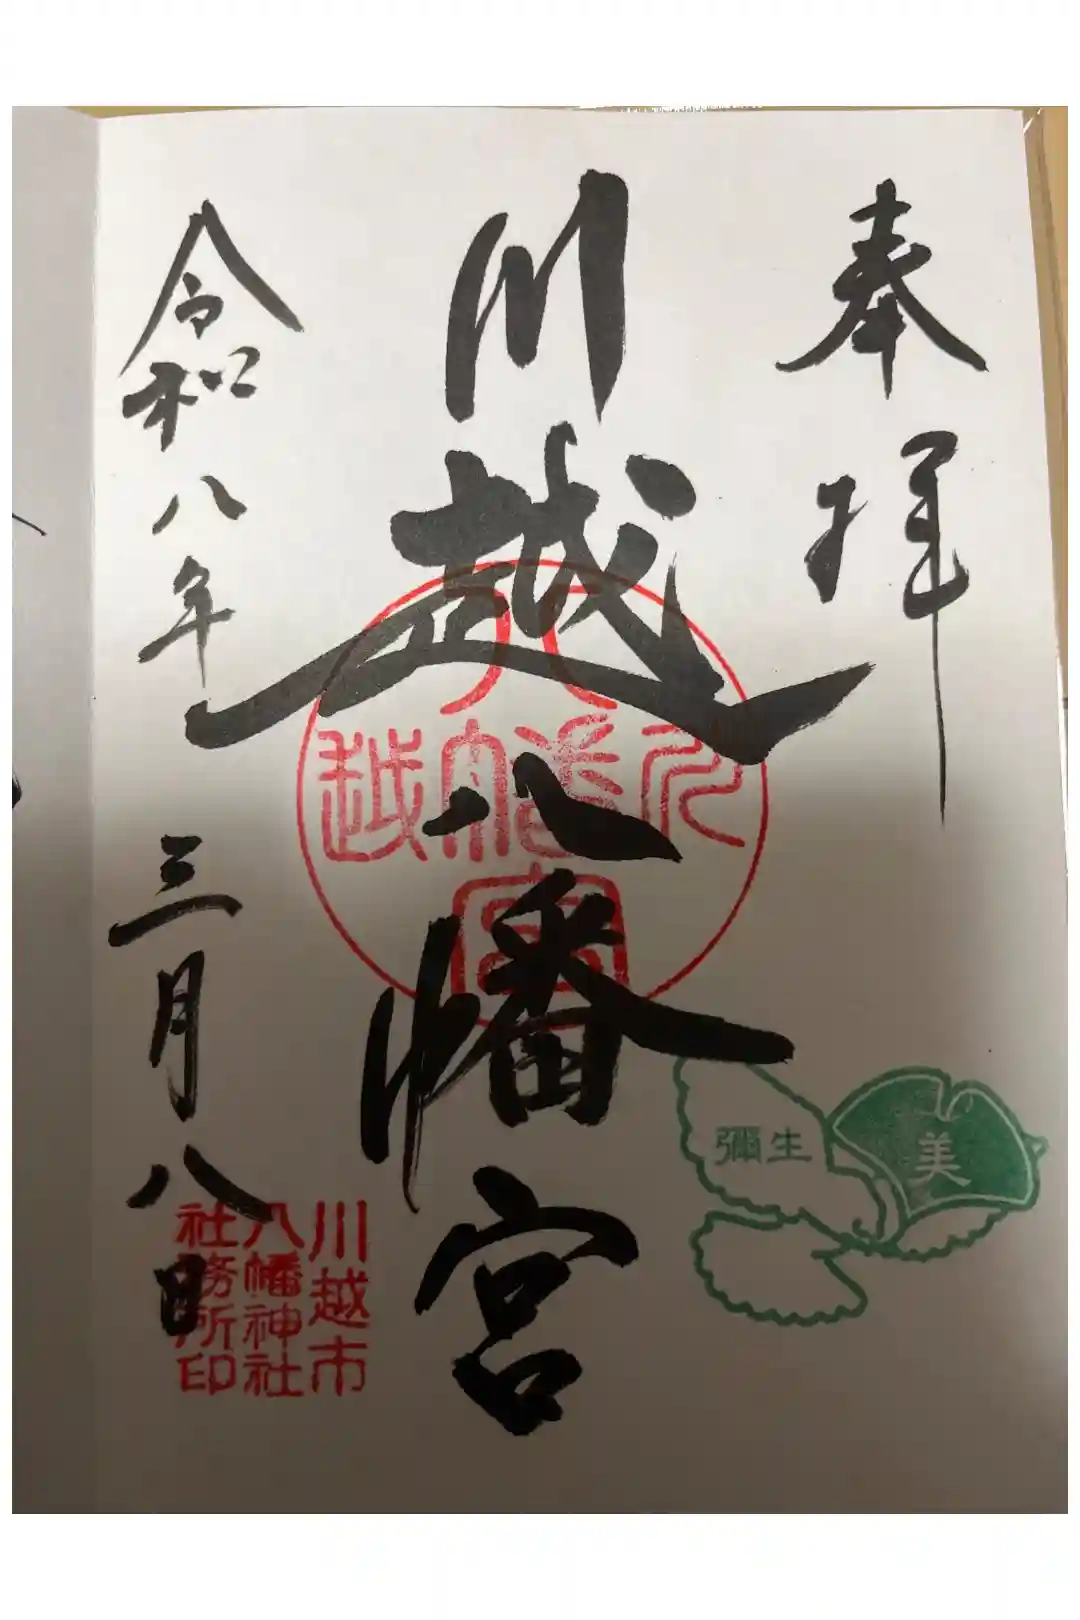 奉拝
川越八幡宮
令和八年三月八日
八
川越
幡宮
彌生
美
川越市
八幡神社
社務所印